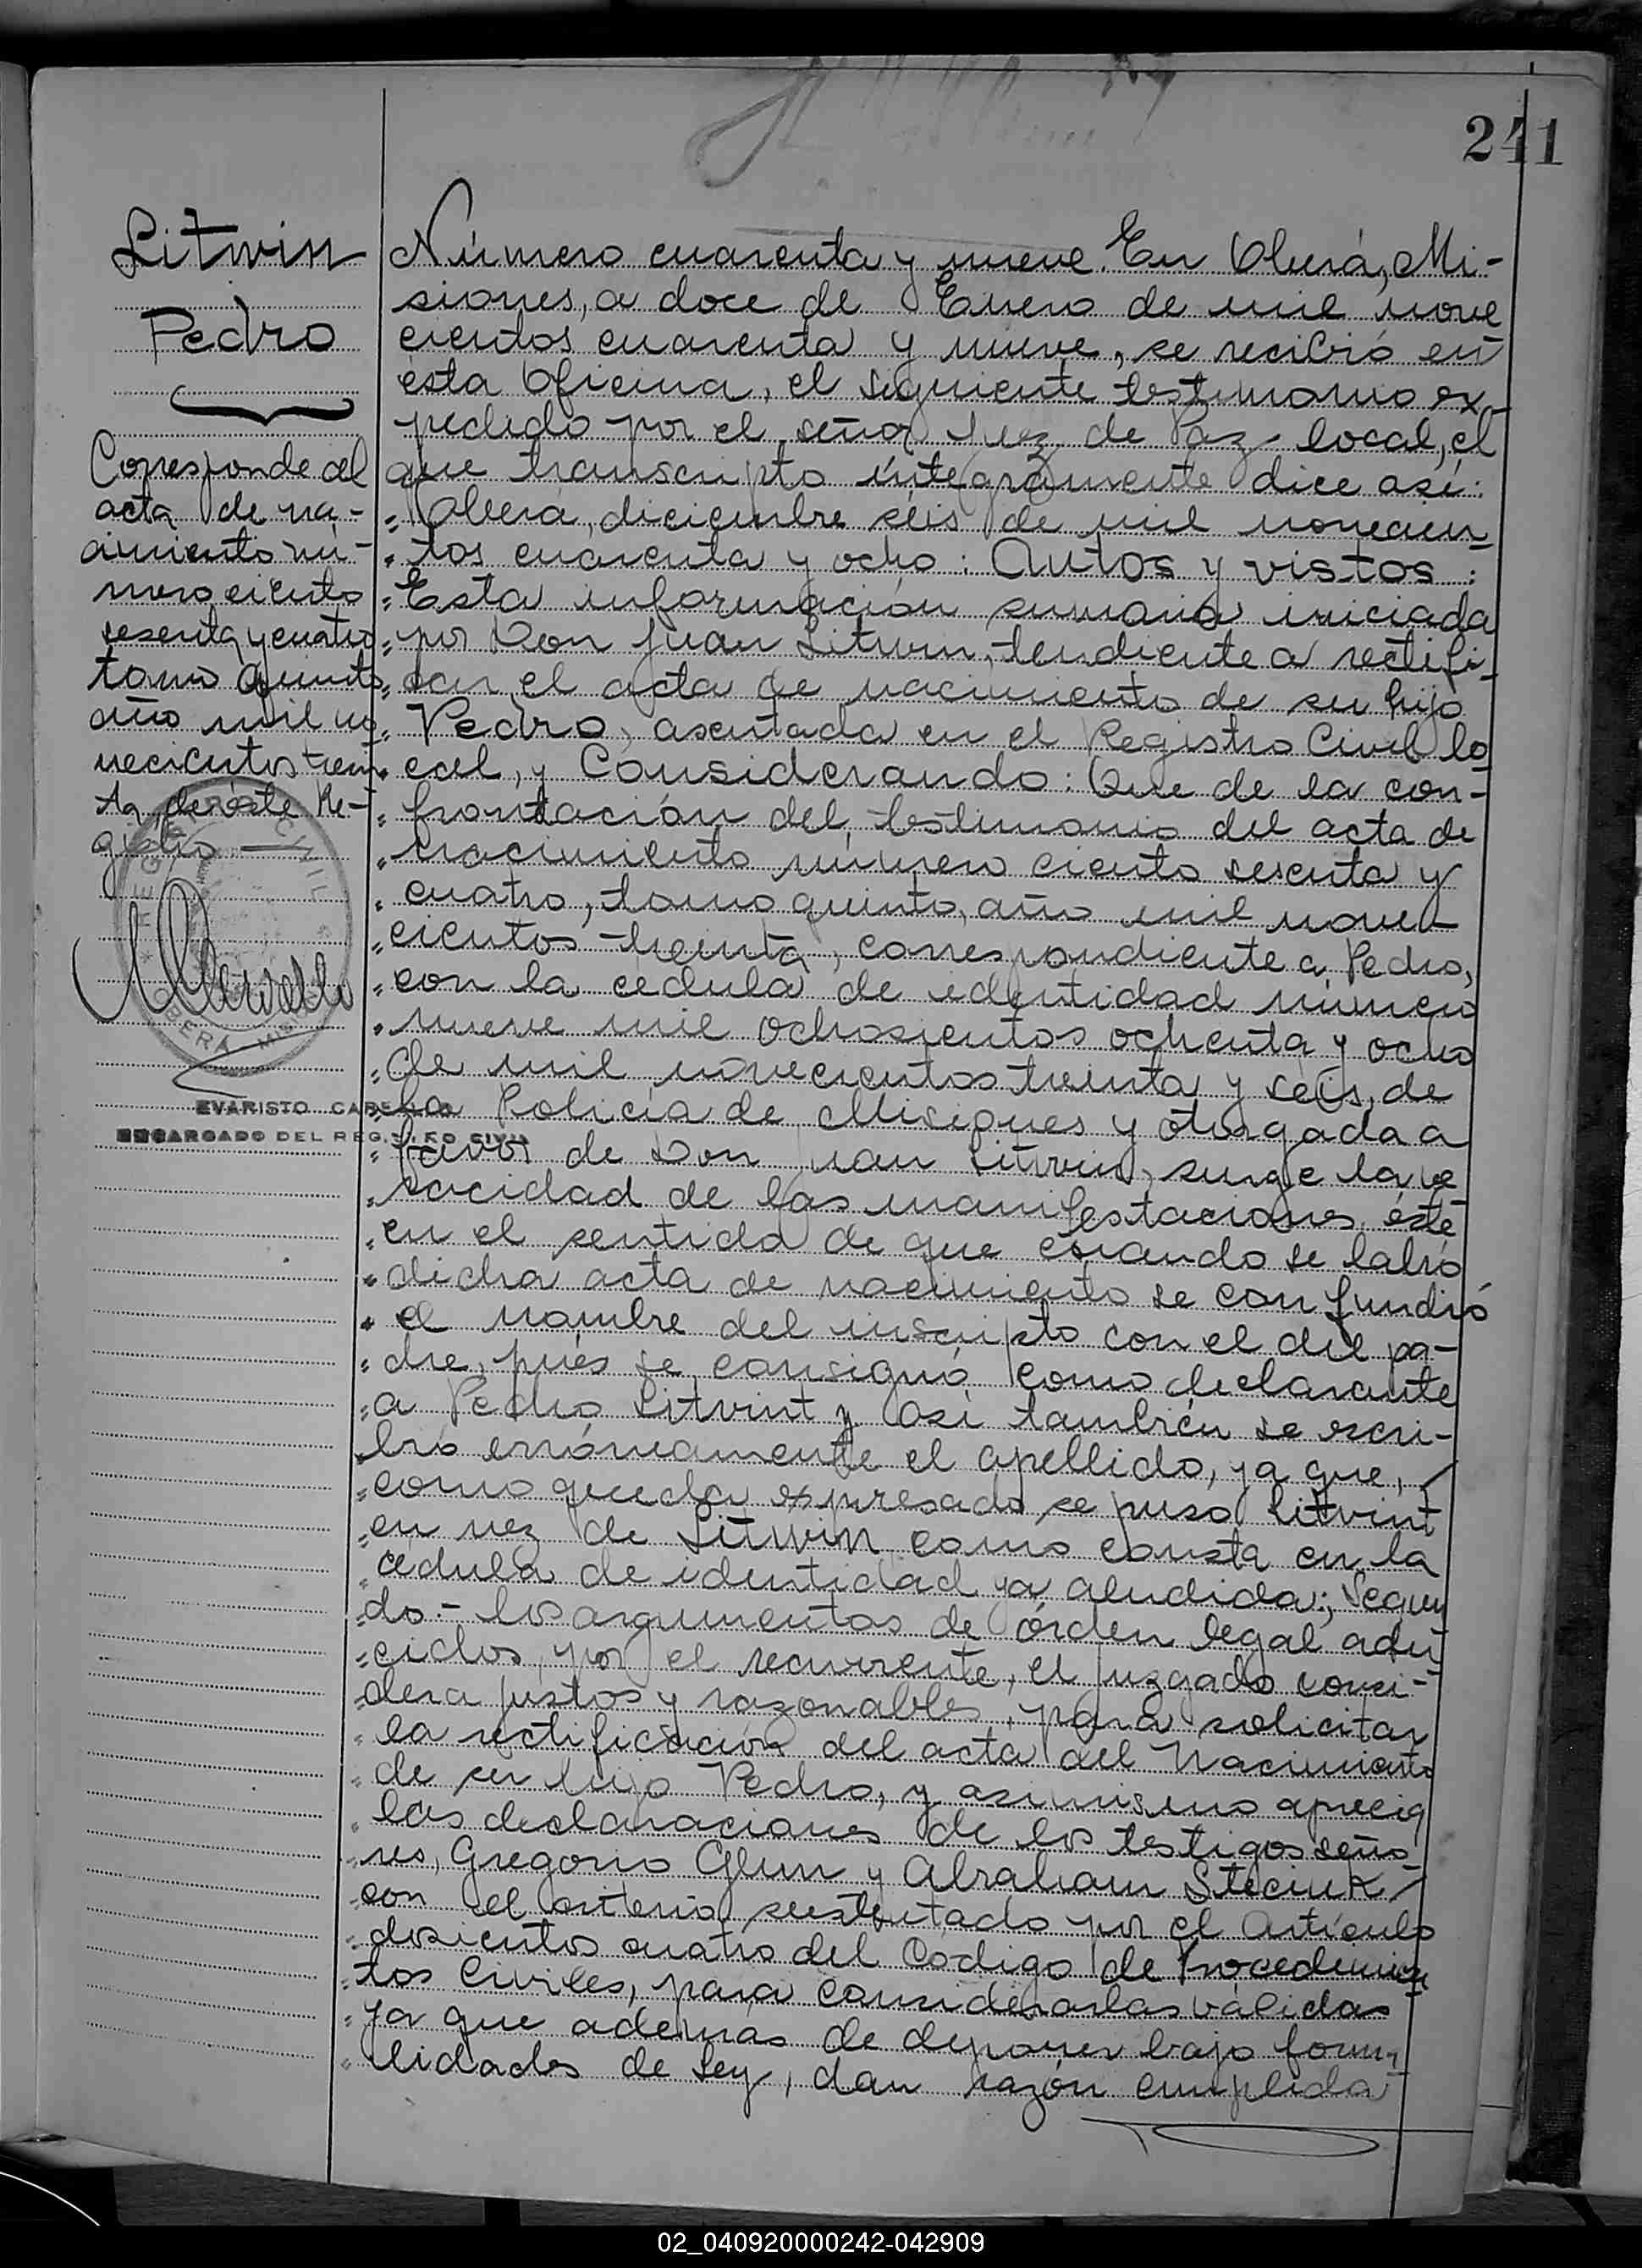 241
Litwin
Pedro
Corresponde al
acta de na-
cimiento nú-
mero ciento
sesenta y cuatro
tomo quinto
año mil no
vecientos trein
ta, de éste Re-
gistro
REGISTRO CIVIL
OBERA
EVARISTO
ENCARGADO DEL REGISTRO CIVIL
Número cuarenta y nueve. En Oberá, Mi-
siones, a doce de Enero de mil nove
cientos cuarenta y nueve, se recibió en
ésta Oficina, el siguiente testimonio ex
pedido por el señor Juez de Paz local, el
que transcripto íntegramente dice así:
" Oberá, diciembre séis de mil novecien
" tos cuarenta y ocho: Autos y vistos:
" Esta información sumaria iniciada
" por Don Juan Litwin, tendiente a rectifi
" car el acta de nacimiento de su hijo
" Pedro, asentada en el Registro Civil lo
" cal, y Considerando: Que de la con-
" frontación del testimonio del acta de
" nacimiento número ciento sesenta y
" cuatro, tomo quinto, año mil nove
" cientos treinta, correspondiente a Pedro,
" con la cédula de identidad número
" nueve mil ochosientos ochenta y ocho
" de mil novecientos treinta y séis, de
" la Policía de Misiones y otorgada a
" favor de Don Juan Litwin, surge la ve
" racidad de las manifestaciones éste
" en el sentido de que cuando se labró
" dicha acta de nacimiento se confundió
" el nombre del inscripto con el del pa-
" dre, pués se consignó como declarante
" a Pedro Litvint y así también se escri-
" bió erróneamente el apellido, ya que,
" como queda expresado se puso Litvint
" en vez de Litwin como consta en la
" cédula de identidad ya aludida; Segun
" do.- los argumentos de órden legal adu
" cidos, por el recurrente, el juzgado consi-
" dera justos y razonables, para solicitar
" la rectificación del acta del Nacimiento
" de su hijo Pedro, y asimismo aprecia
" las declaraciones de los testigos seño
" res, Gregorio Glun y Abraham Steciuk
" con el criterio sustentado por el Artículo
" dosientos cuatro del Código de Procedimien
" tos Civiles, para considerarlas válidas
" ya que además de deponer bajo forma
" lidades de Ley, dan razón cumplida
02_040920000242-042909